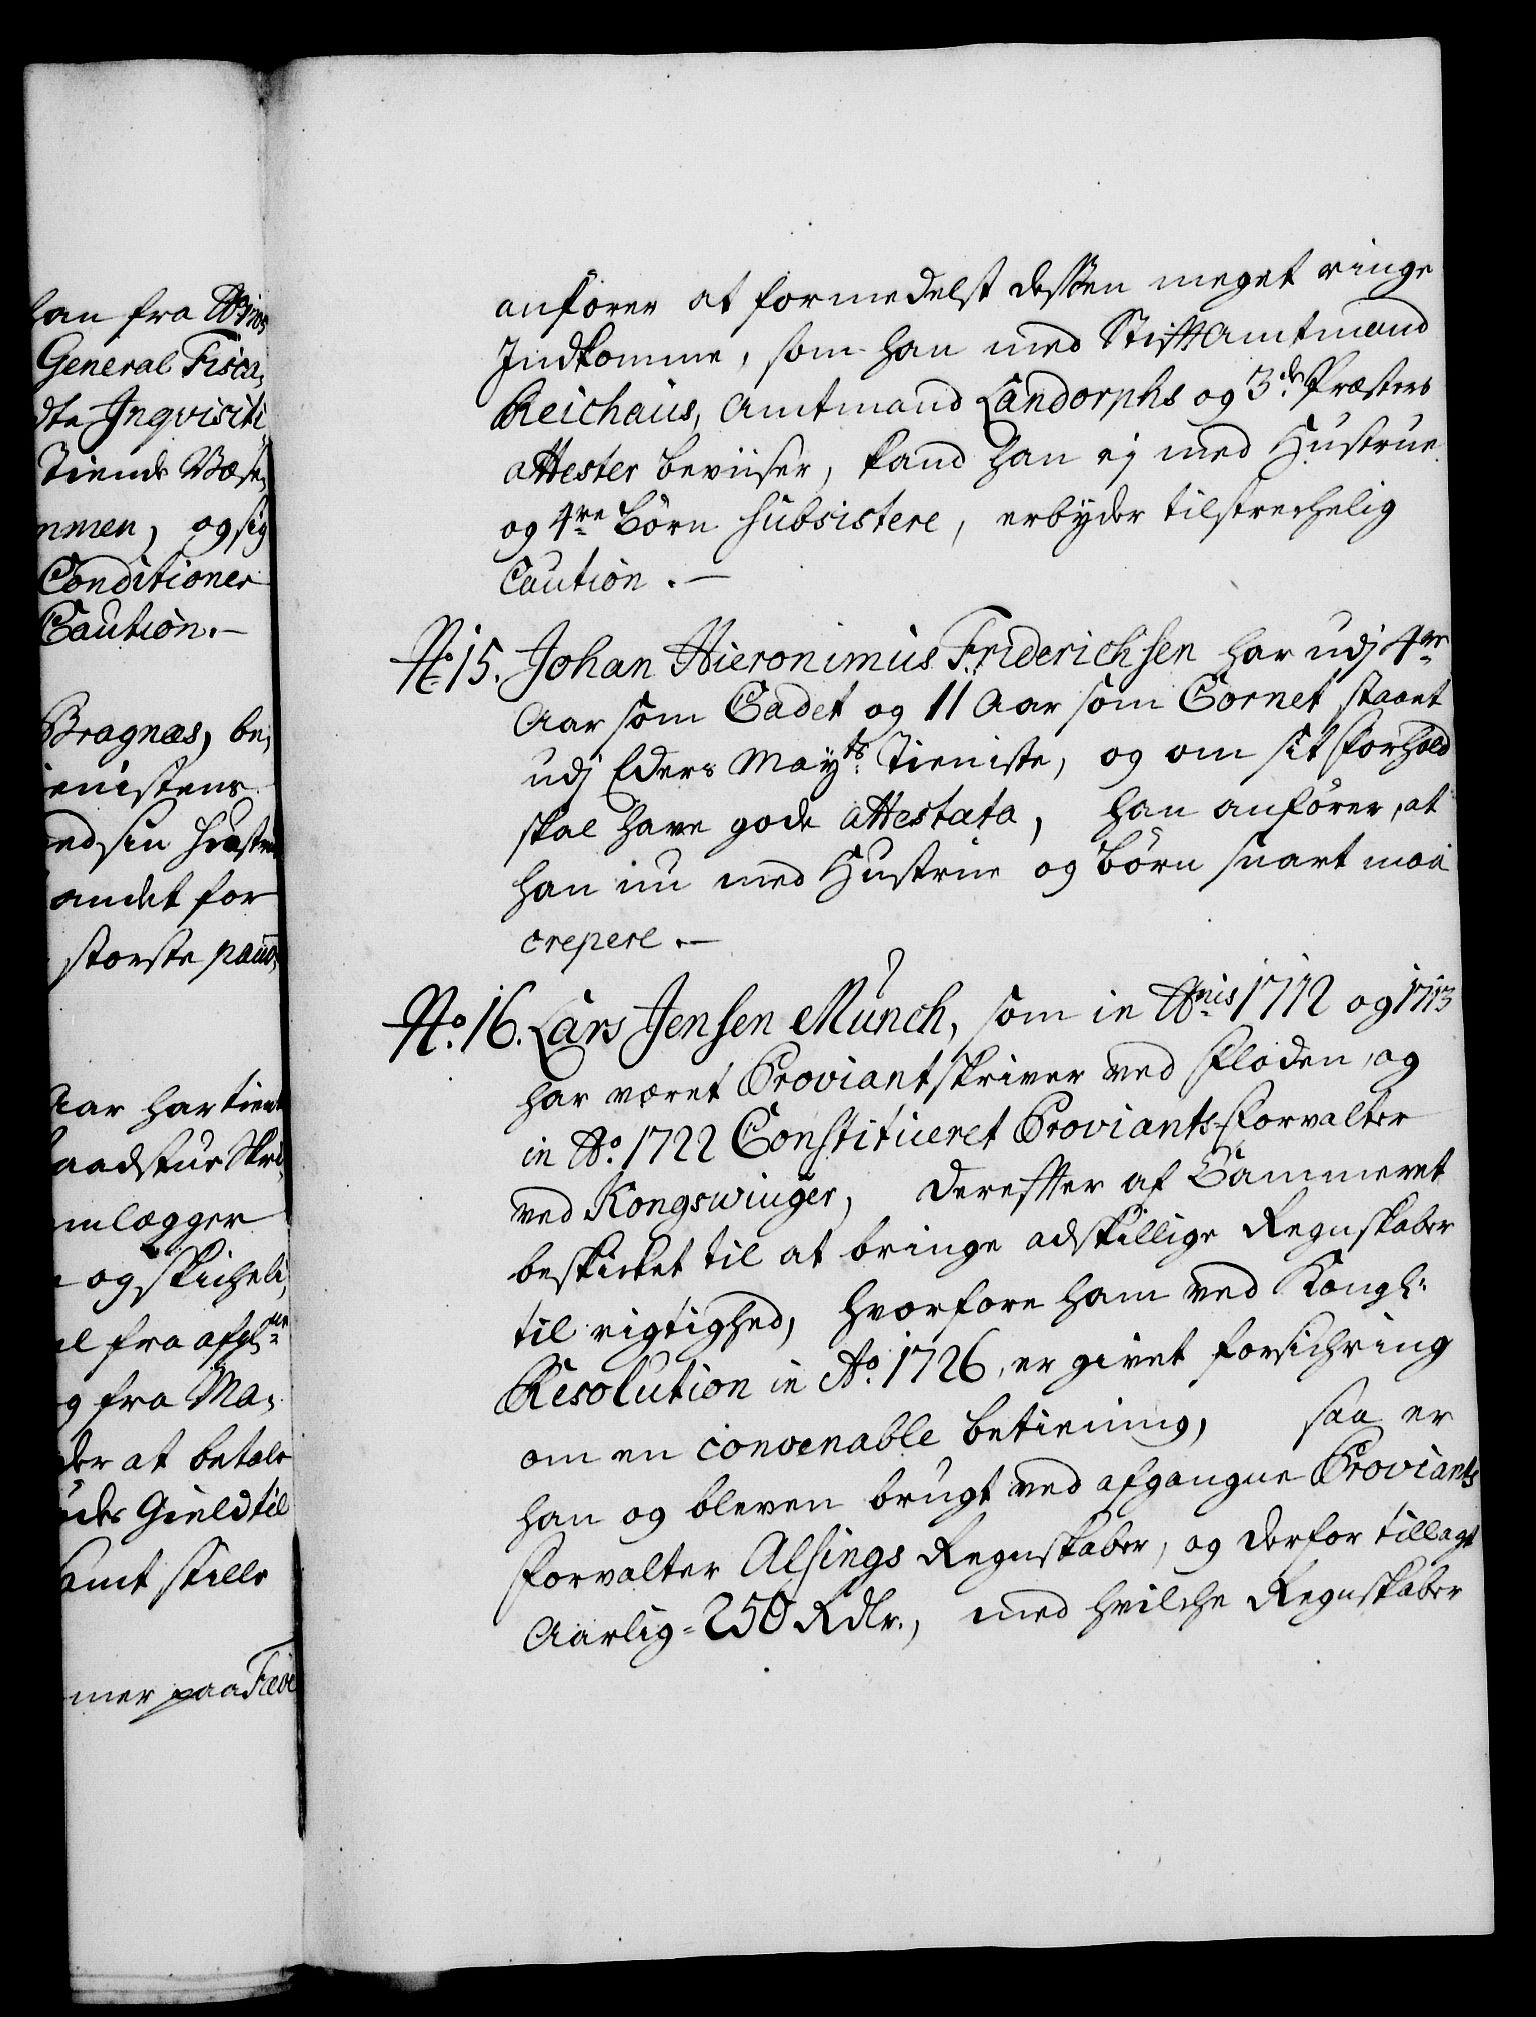 han fra
General Fisca,
dte Inqvisiti
Tiende Væse,
mmen, og sig
Conditioner
Caution.-
Bragnæs, be,
enistens
ed sin Hustru
andet for
største paas,
Aar har tient
aadstue Skri,
mlegger
og skicheli,
el fra afg
g fra Ma,
der at betale
des Gield til
samt stille
mer paa
anfører at formedelst dessen meget ringe
Indkomme, som han med Stiftamtmand
Reichaus, Amtmand Landorphs og 3de Præsters
attester beviiser, kand han ej med Hustrue
og 4re Börn subsistere, erbyder tilstrechelig
Caution.-
No 15. Johan Hieronimus Friderichsen har udj 4re
Aar som Cadet og 11 Aar som Cornet staaet
udj Eders Mayts Tieniste, og om sit Forhold
skal have gode attestata, han anfører, at
han nu med Hustrue og Börn snart maa
crepere.-
No. 16. Lars Jensen Munch, som in Anis 1712 og 1713
har været Proviantskriver ved Floden, og
in Ao. 1722 Constitueret Proviants-Forvalter
ved Kongswinger, derefter af Cammeret
beskicket til at bringe adskillige Regnskaber
til rigtighed, hvorfore ham ved Kongl:
Resolution in Ao. 1726, er givet forsichring
om en convenable betiening, saa er
han og bleven brugt ved afgangne Proviants
Forvalter Alsings Regnskaber, og derfor tillagt
Aarlig = 250 Rdlr., med hvilche Regnskaber